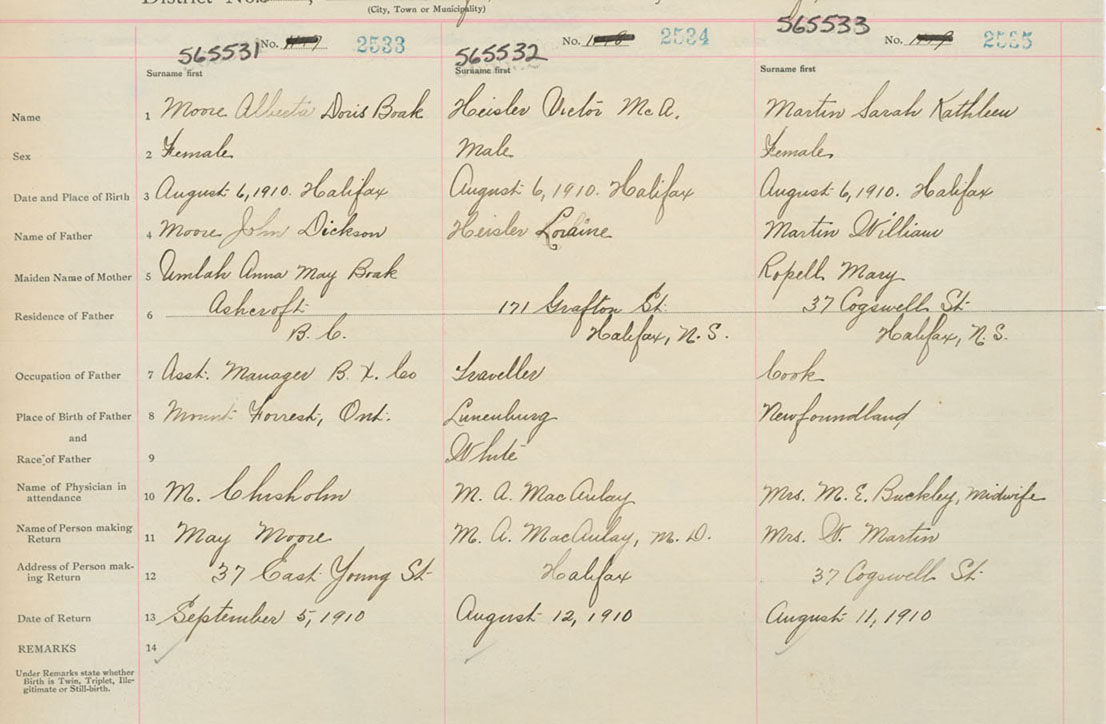 District No.
(City, Town or Municipality)
565531 No. 2533 565532 No. 2534 565533 No. 2535
Surname first Surname first Surname first
Name 1 Moore Alberta Doris Boak Heisler Victor McA. Martin Sarah Kathleen
Sex 2 Female Male Female
Date and Place of Birth 3 August 6, 1910. Halifax August 6, 1910. Halifax August 6, 1910. Halifax
Name of Father 4 Moore John Dickson Heisler Loraine Martin William
Maiden Name of Mother 5 Umlah Anna May Boak Ropell Mary
Residence of Father 6 Ashcroft 171 Grafton St. 37 Cogswell St
B. C. Halifax, N. S. Halifax, N. S.
Occupation of Father 7 Asst. Manager B. X. Co Traveller Cook
Place of Birth of Father 8 Mount Forrest, Ont. Lunenburg Newfoundland
and
Race of Father 9 White
Name of Physician in
attendance 10 M. Chisholm M. A. MacAulay Mrs. M. E. Buckley, midwife
Name of Person making
Return 11 May Moore M. A. MacAulay, M. D. Mrs. W. Martin
Address of Person mak-
ing Return 12 37 East Young St Halifax 37 Cogswell St.
Date of Return 13 September 5, 1910 August 12, 1910 August 11, 1910
REMARKS 14
Under Remarks state whether
Birth is Twin, Triplet, Ille-
gitimate or Still-birth.